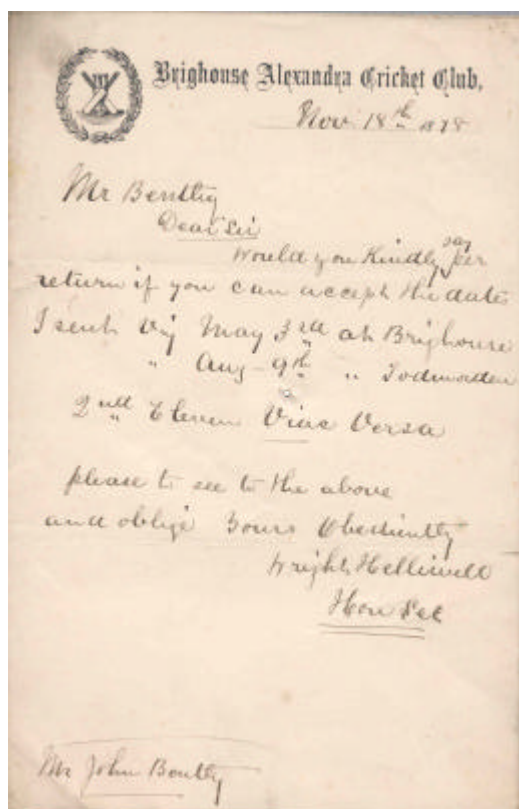 Brighouse Alexandra Cricket Club,
Nov 18th 1878
Mr Bentley
Dear Sir
Would you Kindly say per
return if you can accept the dates
I sent viz May 3rd at Brighouse
" Aug 9th " Todmorden
2nd Eleven Vias Versa
please to see to the above
and oblige Yours Obediently
Wright Helliwell
Hon Sec
Mr John Bentley